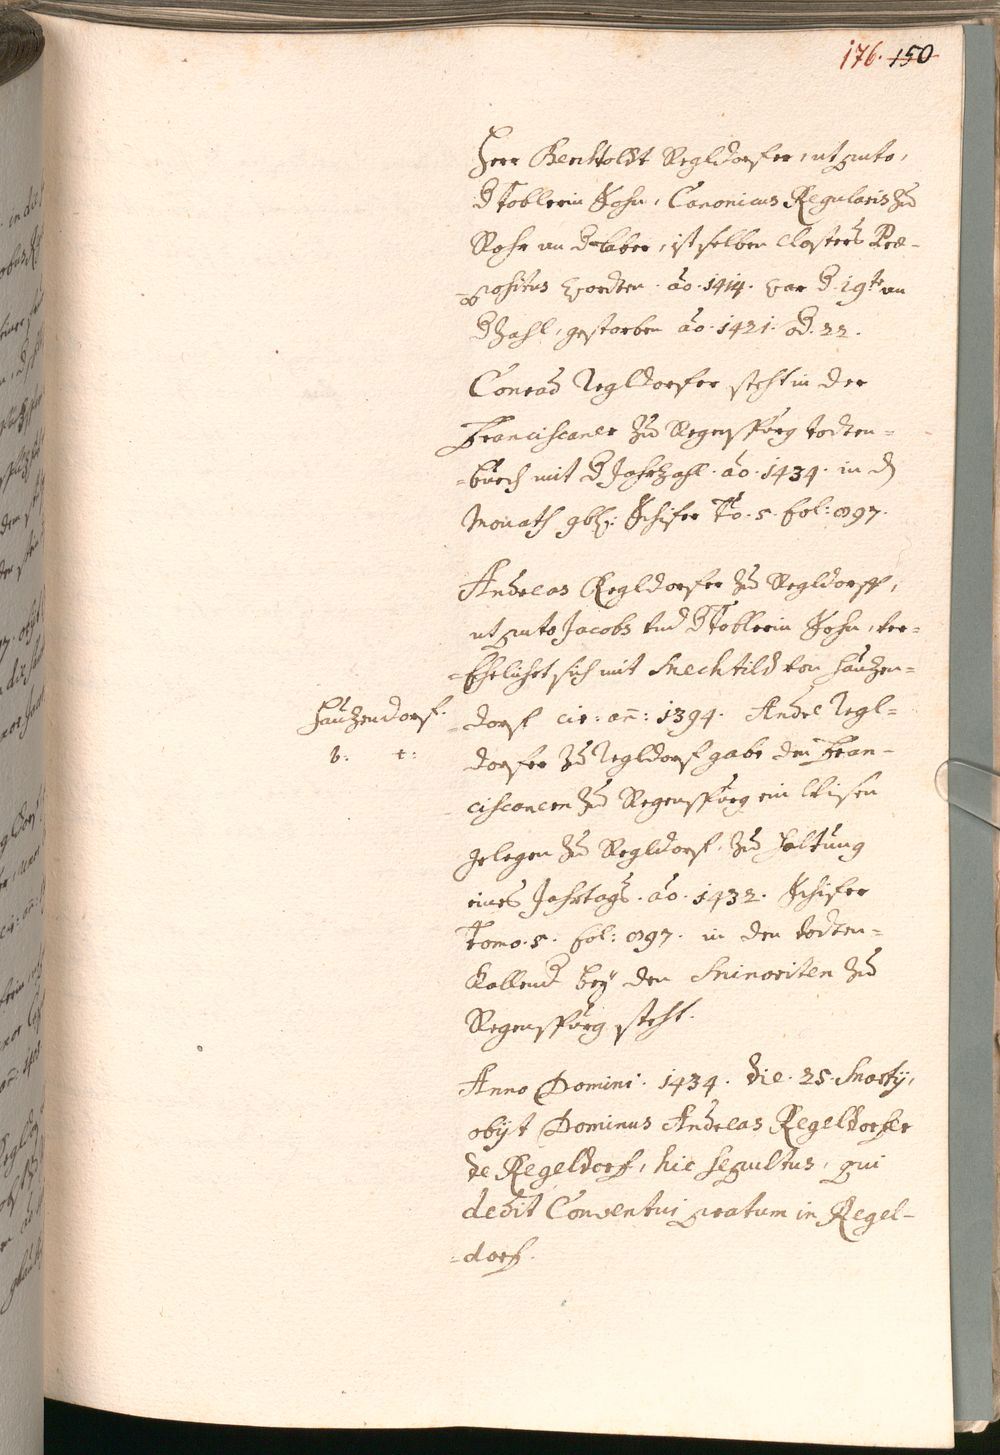 176. 150
Herr Berchtoldt Regldorfer, ut puto,
d Toblerin Sohn, Canonicus Regularis zu
Rohr an d Laber, ist selben Closters Præ-
-positus worden. ao. 1414. war d. 19te an
d Zahl, gestorben ao. 1421. od. 22.
Conrad Regldorfer steht in der
Franciscaner zu Regenspurg todten-
-buech mit d Jahrzahl. ao. 1434. in d
Monath 9b: Schifer To. 5. fol: 897.
Andreas Regldorfer zu Regldorff,
ut puto Jacobs vnd d Toblerin Sohn, ver-
-Ehelichet sich mit Mechtild von Hauzen-
Hauzendorf.
v: t:
-dorf cir: añ: 1394. Andre Regl-
dorfer zu Regldorf gabe den Fran-
ciscanern zu Regenspurg ein Wisen
gelegen zu Regldorf, zu haltung
eines Jahrtags. ao. 1432. Schifer
Tomo. 5. fol: 897. in den todten-
Kallend bey den Minoriten zu
Regenspurg steht.
Anno Domini. 1434. die. 25. Martij,
obijt Dominus Andreas Regeldorfer
de Regeldorf, hic sepultus, qui
dedit Conventui pratum in Regel-
-dorf.